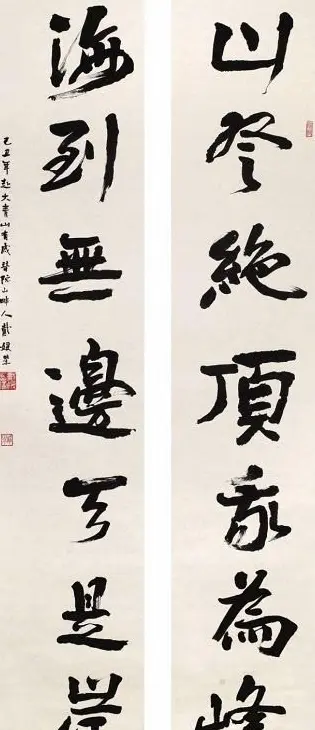 山登絶頂我為峰
海到無邊天是岸
己丑年赴大青山有感普陀山畔人戴